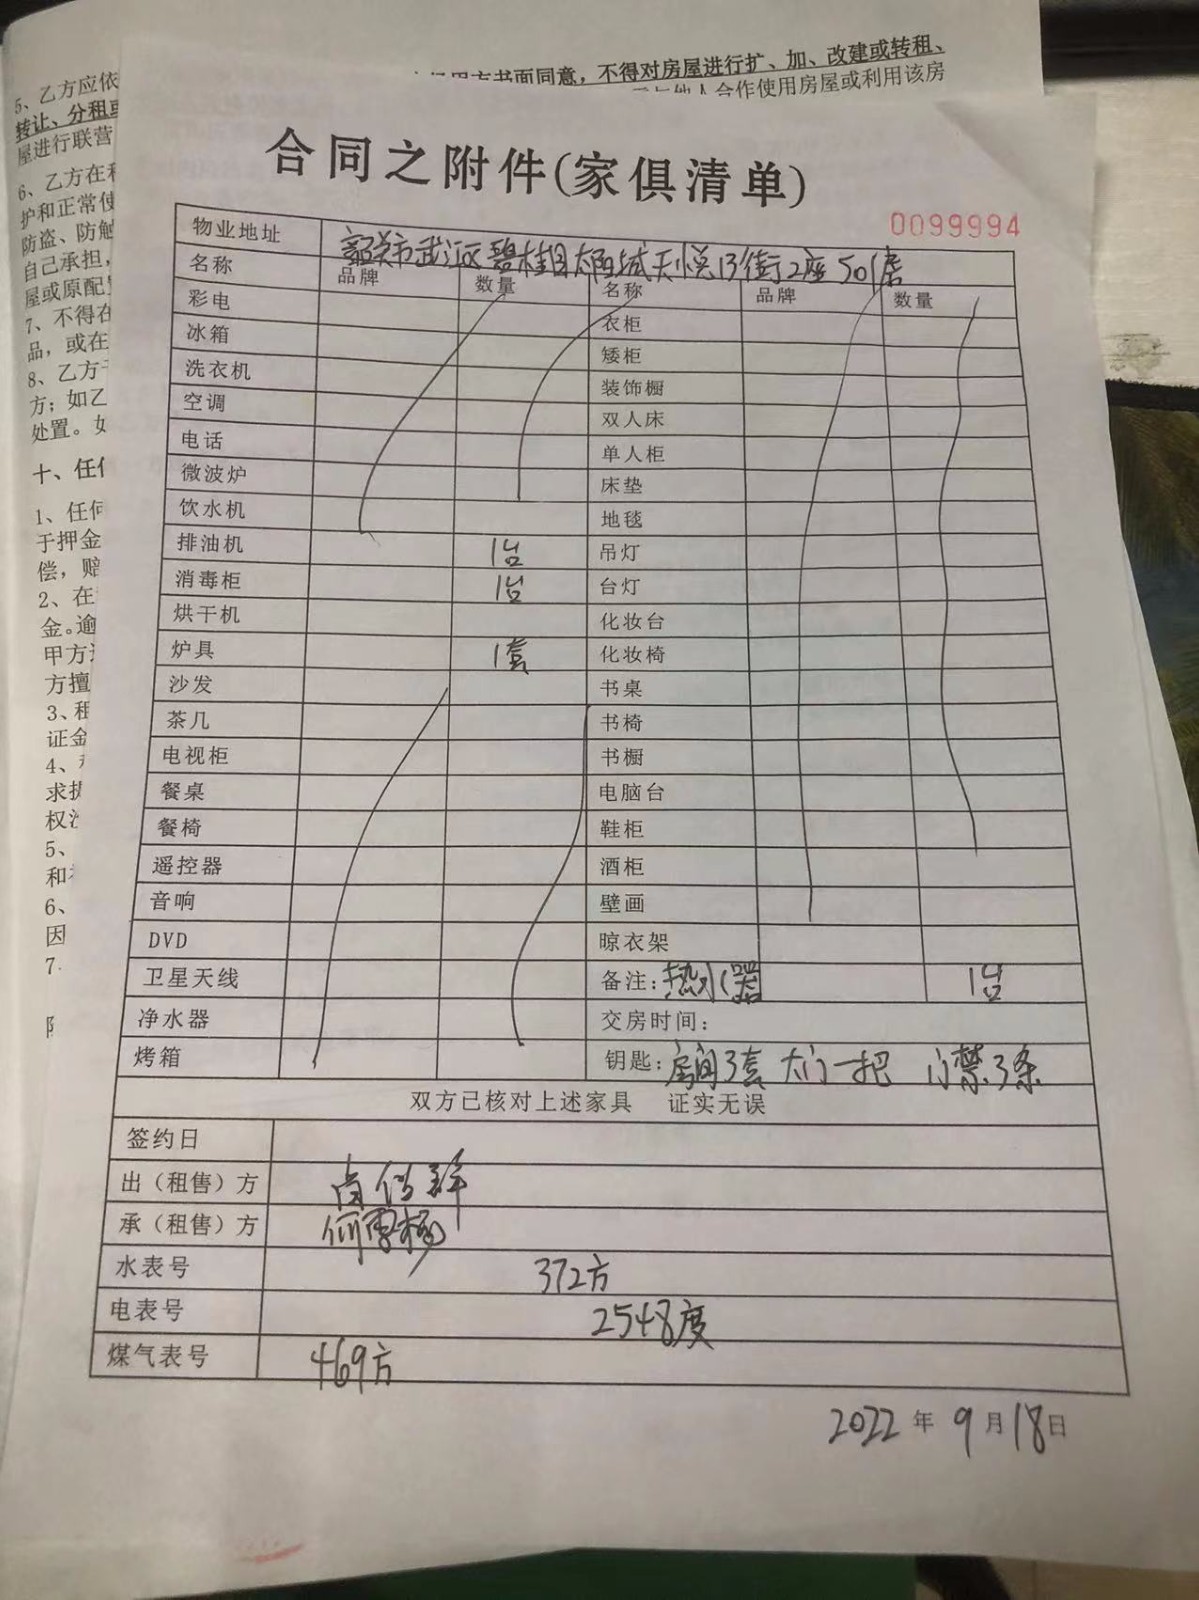 5、乙方应依
方书面同意，不得对房屋进行扩、加、改建或转租、
转让、分租或
与他人合作使用房屋或利用该房
屋进行联营
6、乙方在
护和正常使
防盗、防触
自己承担，
屋或原配
7、不得在
品，或在
8、乙方
方；如乙
处置。如
十、任
1、任何
于押金
偿，赔
2、在
金。逾
甲方
方擅
3、租
证金
4、
求
权
5、
和
6、
因
7
合同之附件(家俱清单)
0099994
物业地址 韶关市武江区碧桂园太阳城天悦13街2座501房
名称 品牌 数量 名称 品牌 数量
彩电 衣柜
冰箱 矮柜
洗衣机 装饰橱
空调 双人床
电话 单人柜
微波炉 床垫
饮水机 地毯
排油机 1台 吊灯
消毒柜 1台 台灯
烘干机 化妆台
炉具 1套 化妆椅
沙发 书桌
茶几 书椅
电视柜 书橱
餐桌 电脑台
餐椅 鞋柜
遥控器 酒柜
音响 壁画
DVD 晾衣架
卫星天线 备注：热水器 1台
净水器 交房时间：
烤箱 钥匙：房间3套 大门一把 门禁3条
双方已核对上述家具 证实无误
签约日
出（租售）方
承（租售）方
水表号 372方
电表号 2548度
煤气表号 469方
2022年9月18日